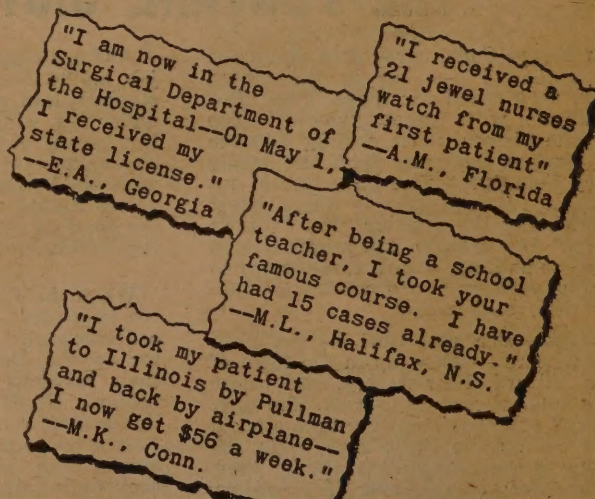 "I am now in the
Surgical Department of
the Hospital--On May 1,
I received my
state license."
--E.A., Georgia
"I received a
21 jewel nurses
watch from my
first patient"
--A.M., Florida
"After being a school
teacher, I took your
famous course. I have
had 15 cases already."
--M.L., Halifax, N.S.
"I took my patient
to Illinois by Pullman
and back by airplane--
I now get $56 a week."
--M.K., Conn.